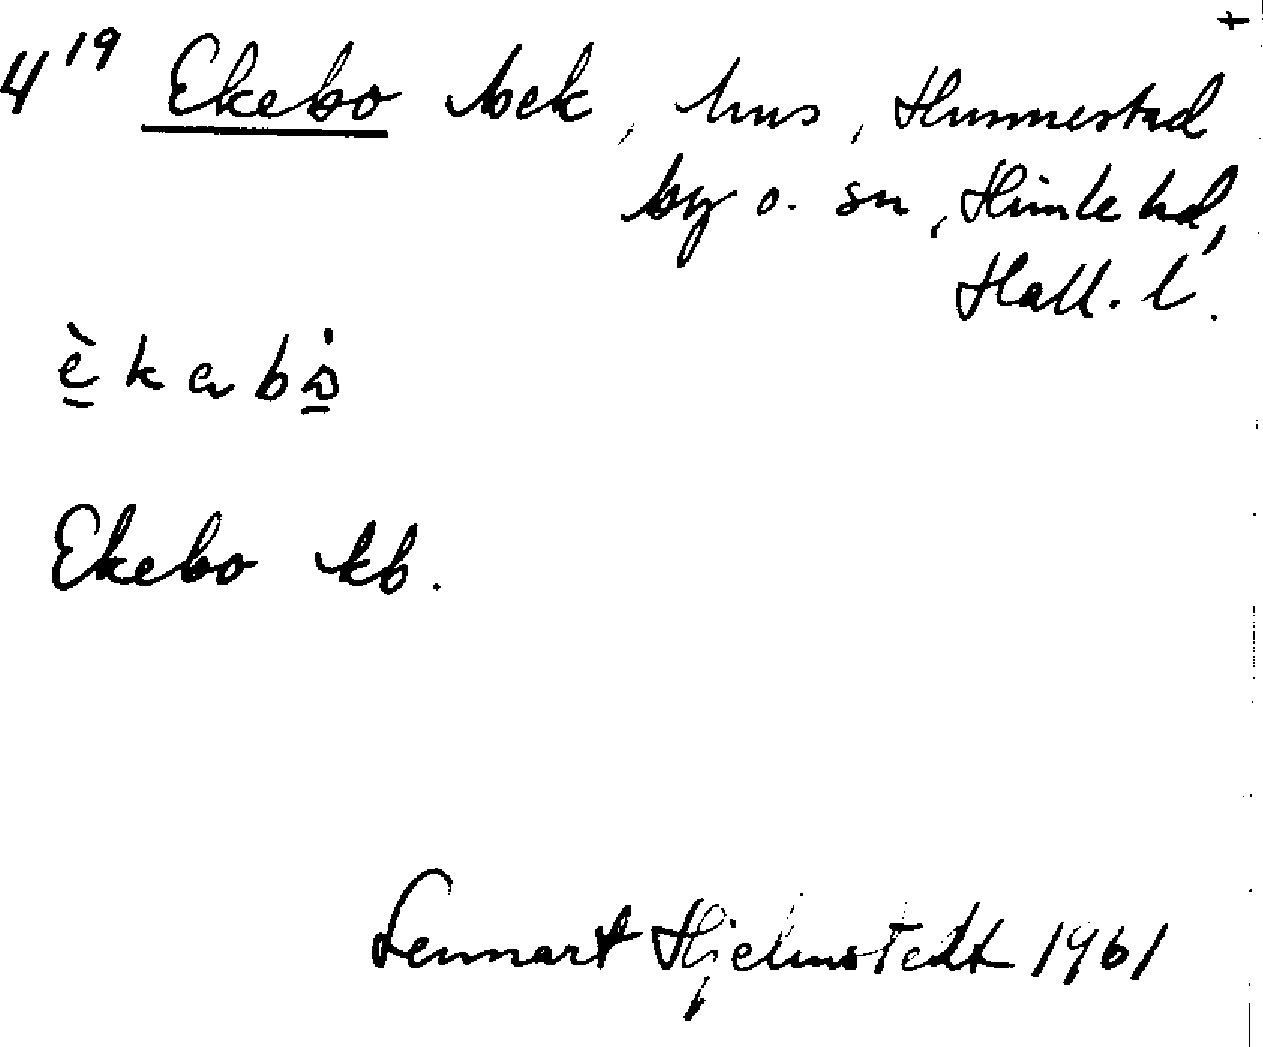 4 19 Ekebo bek, hus, Hunnestad
by o. sn, Himle hd,
Hall. l.
èkabò
Ekebo kb.
Lennart Hjelmstedt 1961